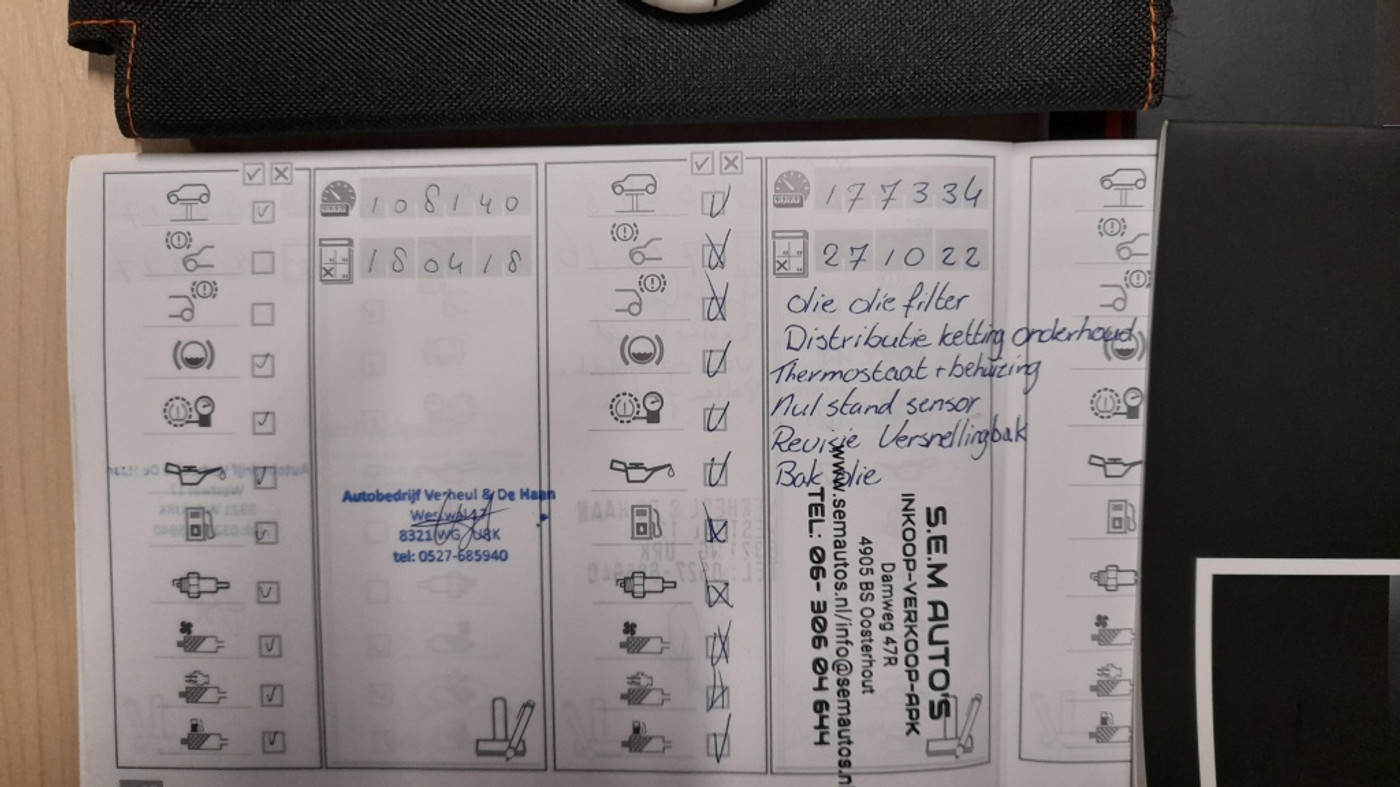 108140
180418
Autobedrijf Verheul & De Haan
8321 WG URK
tel: 0527-685940
177334
271022
olie olie filter
Distributie ketting onderhoud
Thermostaat + behuizing
Nul stand sensor
Revisie Versnellingbak
Bak olie
S.E.M AUTO'S
INKOOP-VERKOOP-APK
Damweg 47R
4905 BS Oosterhout
www.semautos.nl/info@semautos.n
TEL: 06- 306 04 644